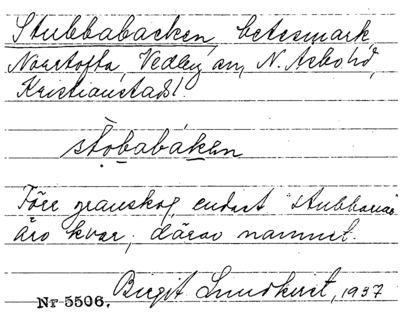 Stubbabacken, betesmark
Naartofta, Vedby sn, N. Åsbo hd,
Kristianstads l.
stọbabáken
Förr granskog, endast "stubbarna"
äro kvar, därav namnet.
Birgit Lundkvist, 1937
Nr 5506.